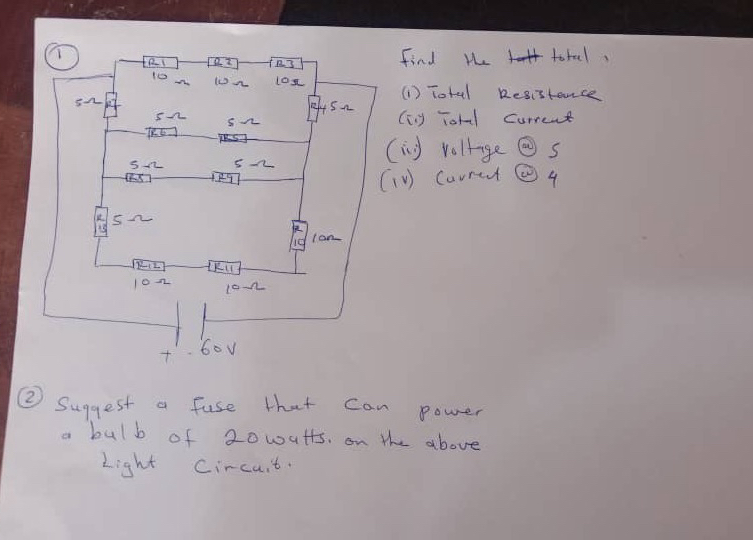 ①
R1 R2 R3
10 Ω 10 Ω 10Ω
5Ω R7 R4 5Ω
5Ω 5Ω
R6 R5
5Ω 5Ω
R8 R9
R13 5Ω
R10 10Ω
R12 R11
10Ω 10Ω
+ - 60V
Find the total,
(i) Total Resistance
(ii) Total Current
(iii) Voltage @ 5
(iv) Current @ 4
② Suggest a fuse that can power
a bulb of 20watts. on the above
Light Circuit.